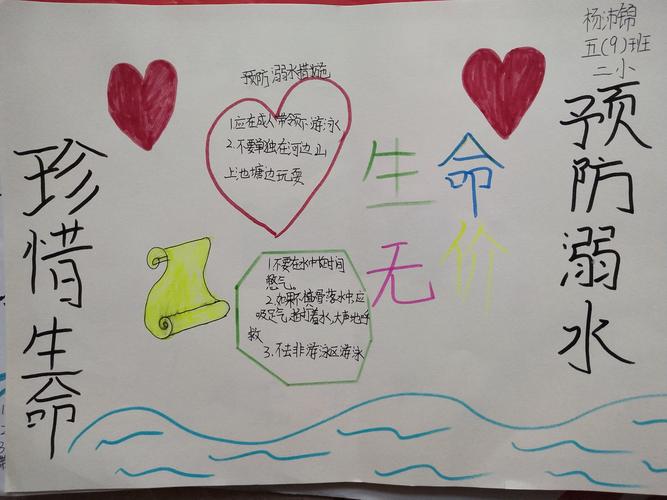 杨沛锦
五(9)班
二小
珍惜生命
预防溺水
预防溺水措施
1.应在成人带领下游泳
2.不要单独在河边、山
上池塘边玩耍
生命
无价
1.不要在水中长时间
憋气。
2.如果不慎滑落水中,应
吸足气,拍打着水,大声地呼
救
3.不去非游泳区游泳